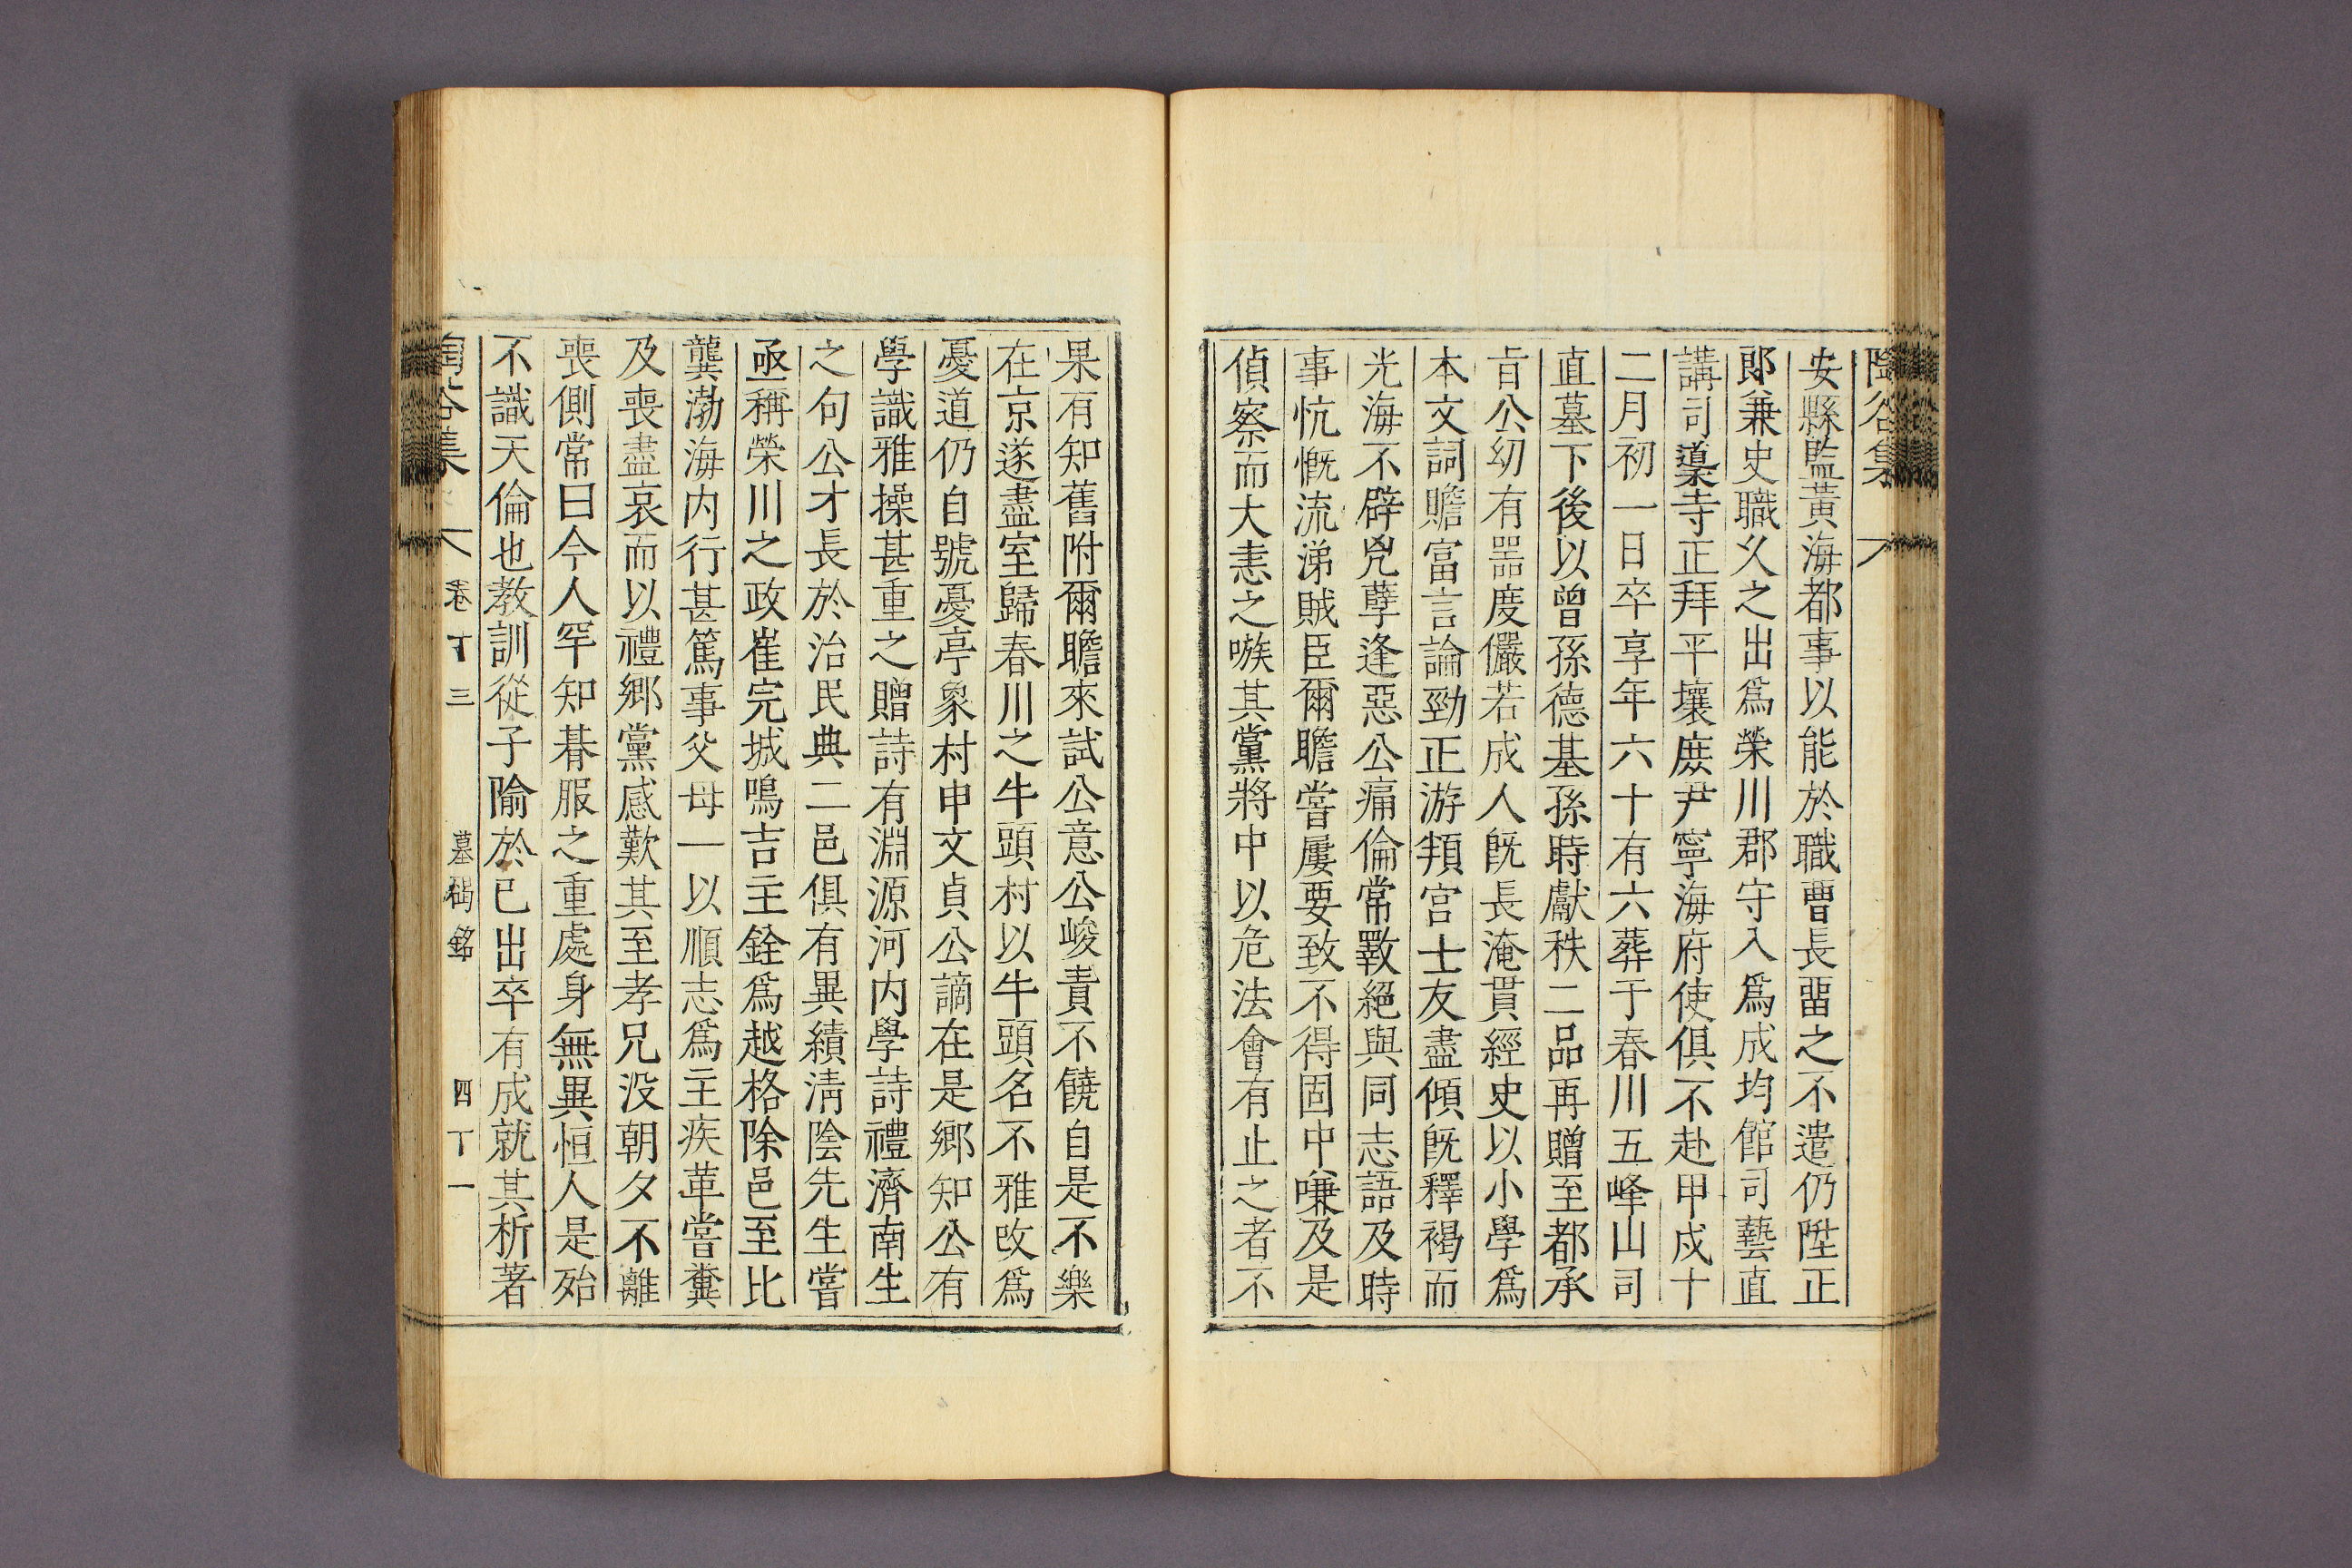 陶谷集
安縣監黃海都事以能於職曹長畱之不遣仍陞正
郎兼史職久之出爲榮川郡守入爲成均館司藝直
講司導寺正拜平壤庶尹寧海府使俱不赴甲戌十
二月初一日卒享年六十有六葬于春川五峰山司
直墓下後以曾孫德基孫時獻秩二品再贈至都承
旨公幼有噐度儼若成人旣長淹貫經史以小學爲
本文詞贍富言論勁正游頖宮士友盡傾旣釋褐而
光海不辟兇孽逢惡公痛倫常斁絕與同志語及時
事忼慨流涕賊臣爾瞻嘗屢要致不得固中嗛及是
偵察而大恚之嗾其黨將中以危法會有止之者不
果有知舊附爾瞻來試公意公峻責不饒自是不樂
在京遂盡室歸春川之牛頭村以牛頭名不雅改爲
憂道仍自號憂亭象村申文貞公謫在是鄉知公有
學識雅操甚重之贈詩有淵源河內學詩禮濟南生
之句公才長於治民典二邑俱有異績淸陰先生嘗
亟稱榮川之政崔完城鳴吉主銓爲越格除邑至比
龔渤海內行甚篤事父母一以順志爲主疾革嘗糞
及喪盡哀而以禮鄉黨感歎其至孝兄没朝夕不離
喪側常曰今人罕知朞服之重處身無異恒人是殆
不識天倫也教訓從子隃於已出卒有成就其析著
陶谷集 卷丁三 墓碣銘 四丁一